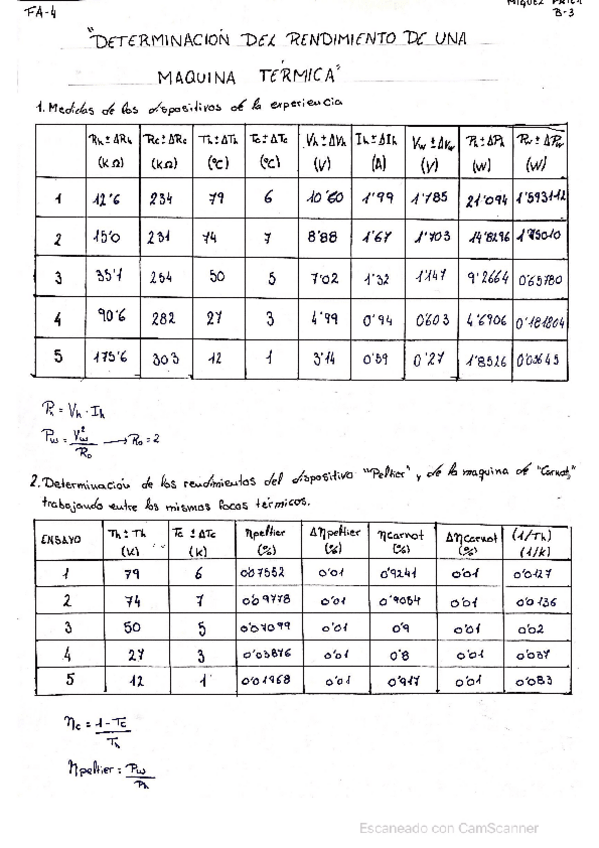 FA-4
B-3
"DETERMINACIÓN DEL RENDIMIENTO DE UNA
MAQUINA TÉRMICA"
1. Medidas de los dispositivos de la experiencia
Rh ± ΔRh Rc ± ΔRc Th ± ΔTh Tc ± ΔTc Vh ± ΔVh Ih ± ΔIh Vw ± ΔVw Ph ± ΔPh Pw ± ΔPw
(KΩ) (KΩ) (ºC) (ºC) (V) (A) (V) (W) (W)
1 12'6 234 79 6 10'60 1'99 1'785 21'094 1'593112
2 15'0 231 74 7 8'88 1'67 1'703 14'8296
3 35'1 254 50 5 7'02 1'32 1'147 9'2664 0'65780
4 90'6 282 27 3 4'99 0'94 0'603 4'6906 0'181804
5 175'6 303 12 1 3'14 0'59 0'27 1'8526 0'03645
Ph = Vh · Ih
Pw = Vw²/Ro → Ro = 2
2. Determinación de los rendimientos del dispositivo "Peltier" y de la maquina de "Carnot"
trabajando entre los mismos focos térmicos.
ENSAYO Th ± Th Tc ± ΔTc ηpeltier Δηpeltier ηcarnot Δηcarnot (1/Th)
(K) (K) (%) (%) (%) (%) (1/K)
1 79 6 0'07552 0'01 0'9241 0'01 0'0127
2 74 7 0'09778 0'01 0'9054 0'01 0'0136
3 50 5 0'07099 0'01 0'9 0'01 0'02
4 27 3 0'03876 0'01 0'8 0'01 0'037
5 12 1 0'01968 0'01 0'917 0'01 0'083
ηc = 1 - Tc/Th
ηpeltier = Pw/Ph
Escaneado con CamScanner